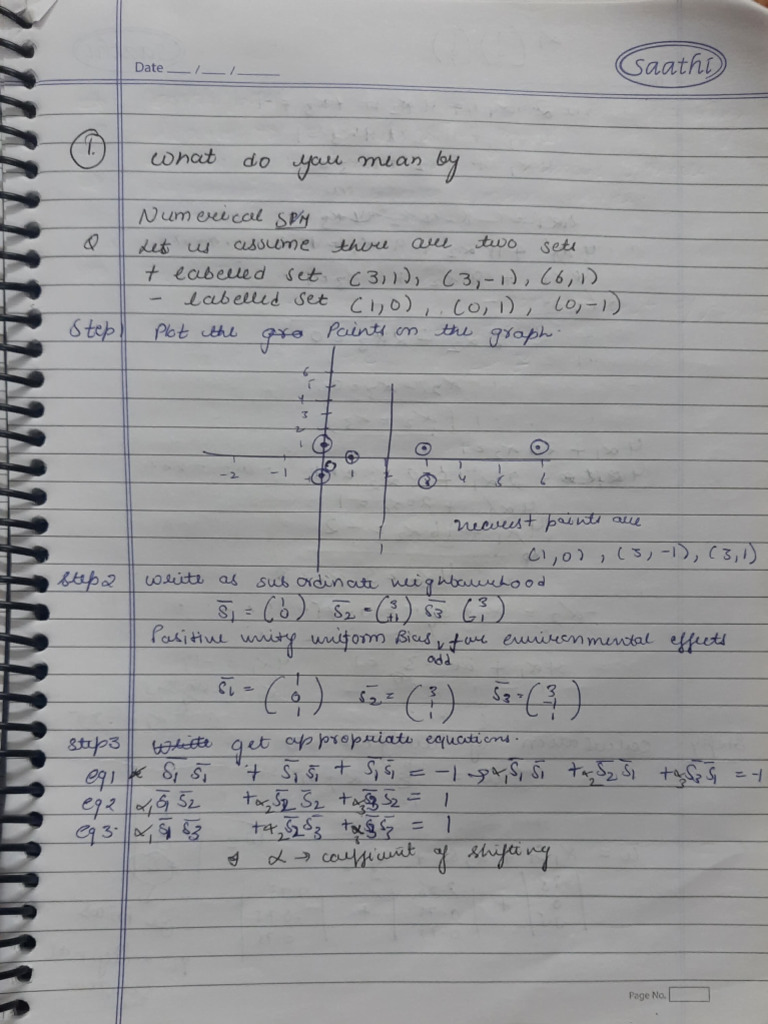 Date __/__/____
Saathi
1. What do you mean by
Numerical SPM
Q Let us assume there are two sets
+ labelled set (3,1), (3,-1), (6,1)
- labelled set (1,0), (0,1), (0,-1)
Step 1 Plot the Points on the graph.
6
5
4
3
2
1
-2 -1 1 3 4 5 6
nearest points are
(1,0), (3,-1), (3,1)
Step2 write as subordinate neighbourhood
S̄1 = (1 0) S̄2 = (3 +1) S̄3 (3 -1)
Positive unity uniform Bias, for environmental effects
add
S̄1 = (1 0 1) S̄2 = (3 1 1) S̄3 = (3 -1 1)
Step3 write get appropriate equations.
eq1 α S̄1 S̄1 + S̄1 S̄1 + S̄1 S̄1 = -1 → α1 S̄1 S̄1 + α2 S̄2 S̄1 + α3 S̄3 S̄1 = -1
eq2 α1 S̄1 S̄2 + α2 S̄2 S̄2 + α3 S̄3 S̄2 = 1
eq3. α1 S̄1 S̄3 + α2 S̄2 S̄3 + α3 S̄3 S̄3 = 1
α → coefficient of shifting
Page No.